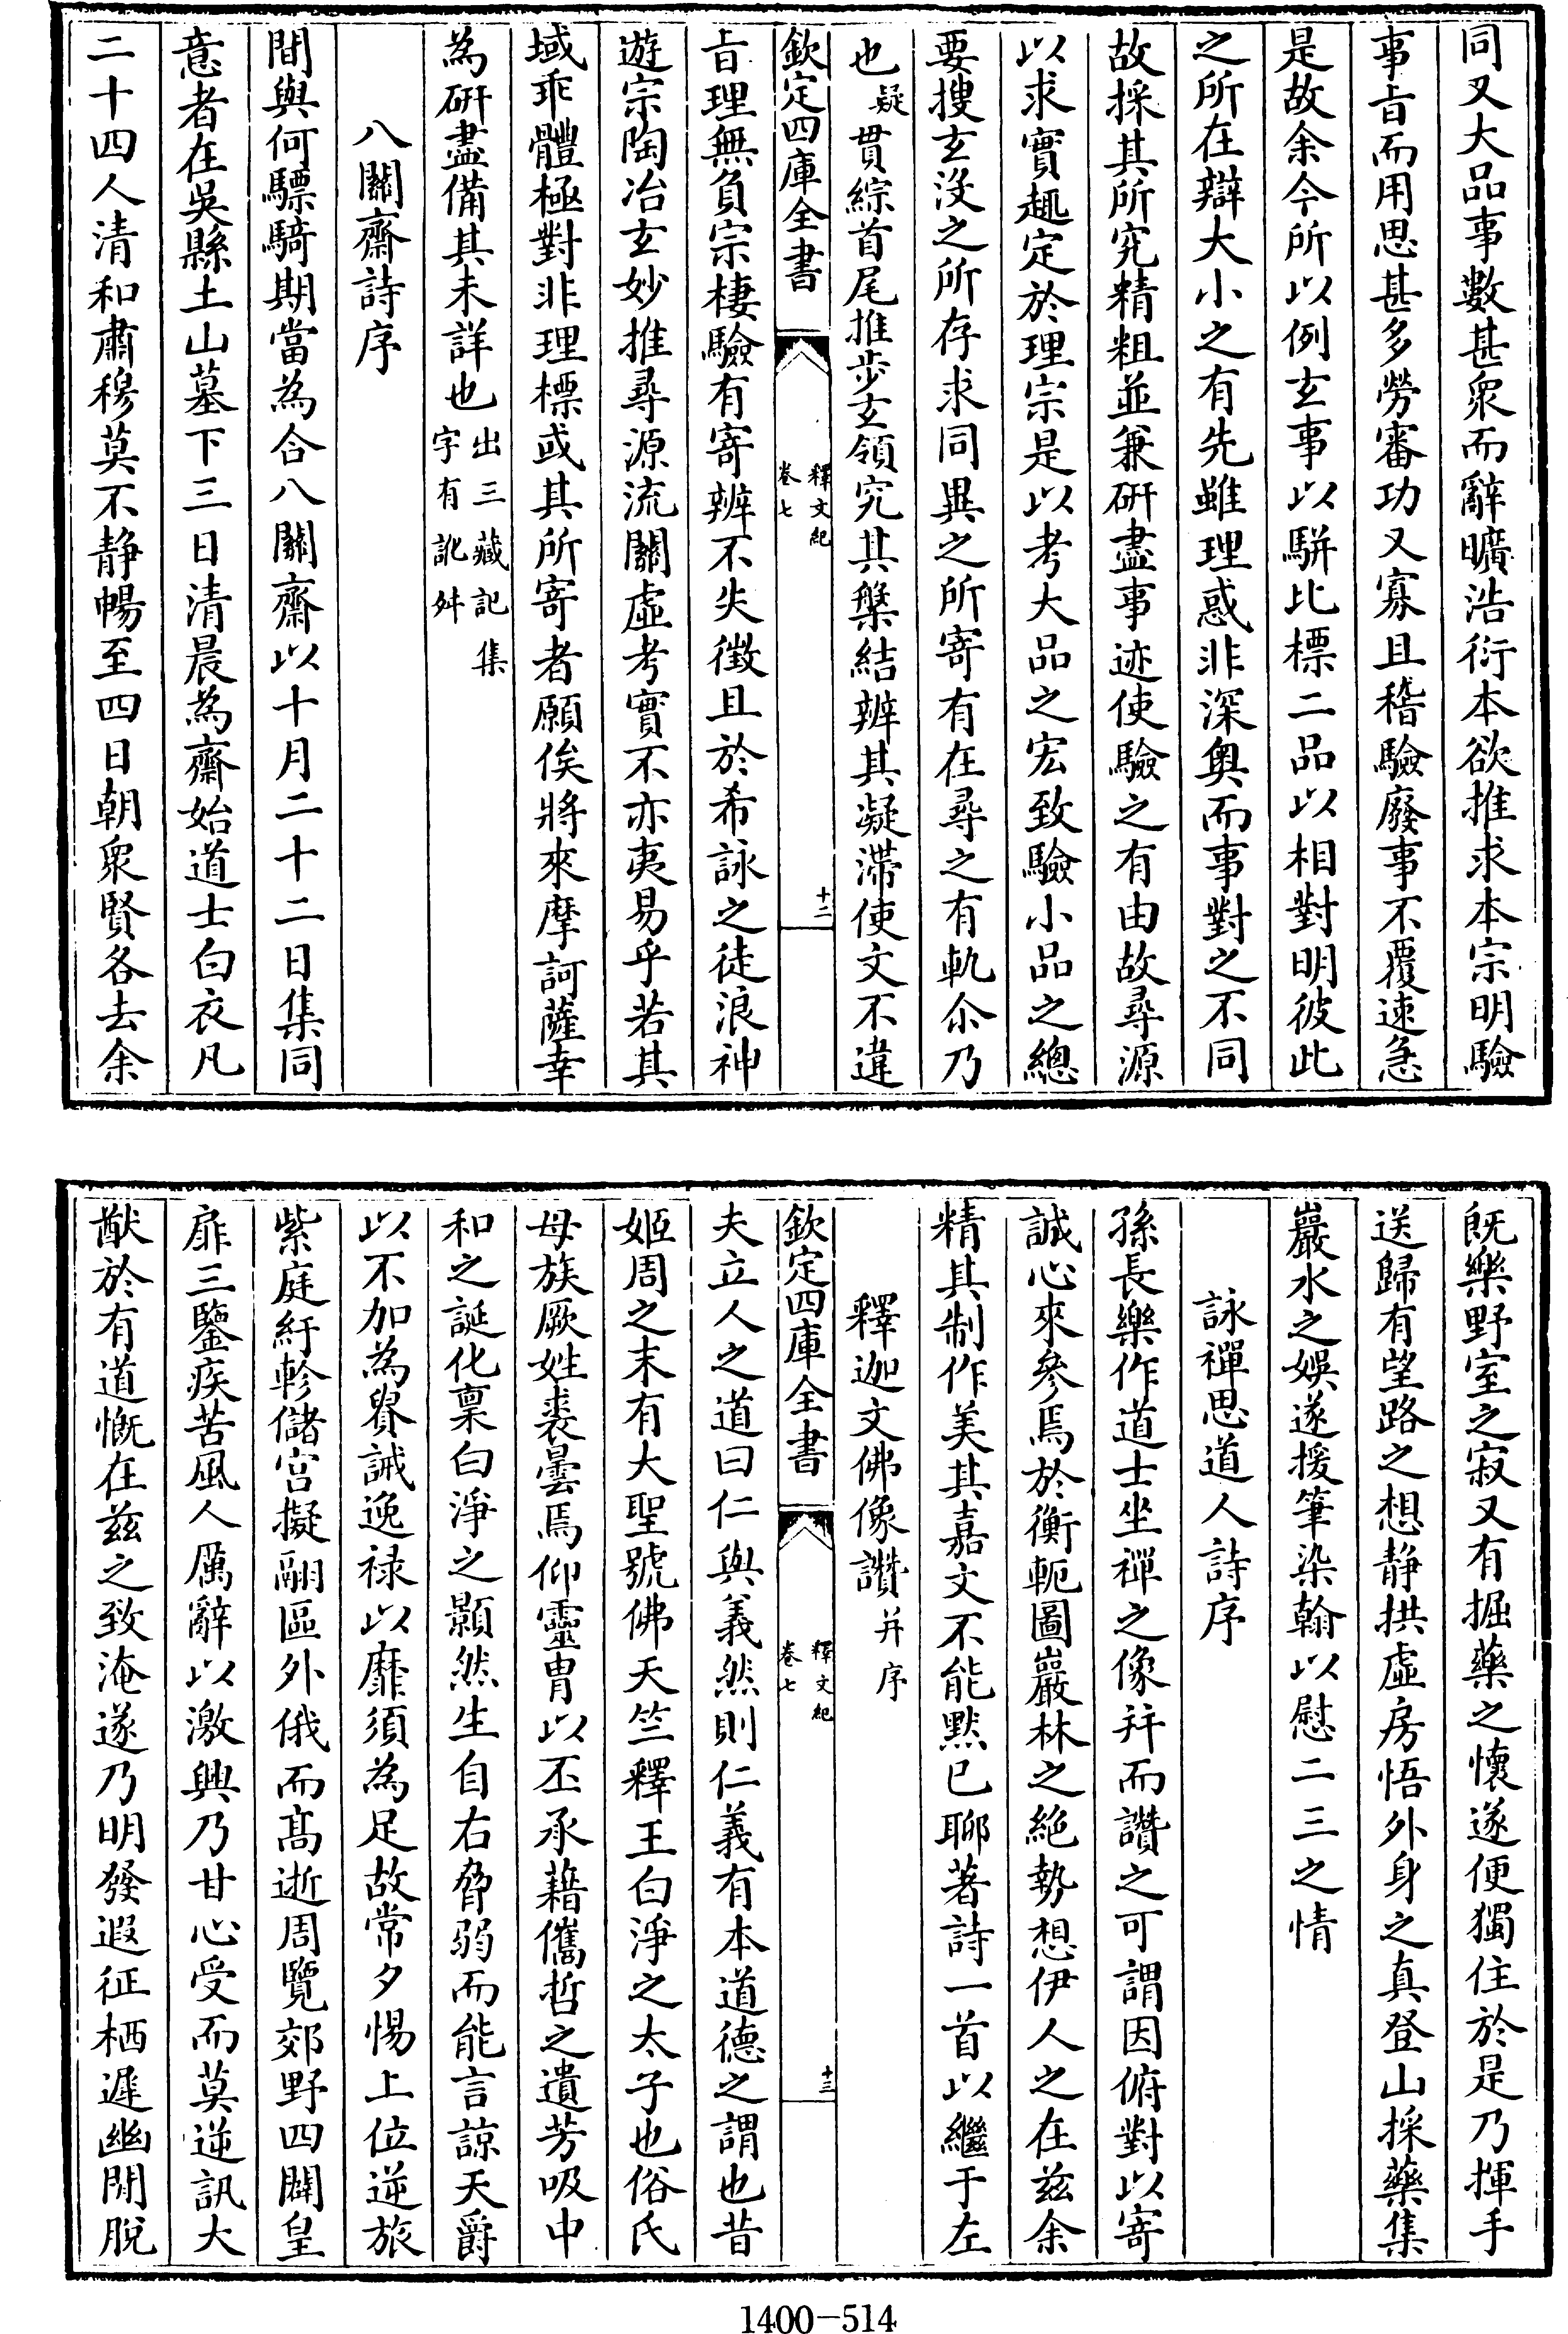 同又大品事數甚衆而辭曠浩衍本欲推求本宗明驗
事旨而用思甚多勞審功又寡且稽驗廢事不覆速急
是故余今所以例玄事以駢比標二品以相對明彼此
之所在辯大小之有先雖理惑非深奥而事對之不同
故採其所究精粗並兼研盡事迹使驗之有由故尋源
以求實趣定於理宗是以考大品之宏致驗小品之總
要搜玄沒之所存求同異之所寄有在尋之有軌尒乃
也疑貫綜首尾推步玄領究其槃結辨其凝滯使文不違
欽定四庫全書
釋文紀
卷七
十二
旨理無負宗棲驗有寄辨不失徵且於希詠之徒浪神
遊宗陶冶玄妙推尋源流關虛考實不亦夷易乎若其
域乖體極對非理標或其所寄者願俟將來摩訶薩幸
為研盡備其未詳也出三藏記集
字有訛舛
八關齋詩序
間與何驃騎期當為合八關齋以十月二十二日集同
意者在吳縣土山墓下三日清晨為齋始道士白衣凡
二十四人清和肅穆莫不静暢至四日朝衆賢各去余
既樂野室之寂又有掘藥之懷遂便獨住於是乃揮手
送歸有望路之想静拱虛房悟外身之真登山採藥集
巖水之娛遂援筆染翰以慰二三之情
詠禪思道人詩序
孫長樂作道士坐禪之像并而讚之可謂因俯對以寄
誠心來參焉於衡軛圖巖林之絶勢想伊人之在兹余
精其制作美其嘉文不能默已聊著詩一首以繼于左
釋迦文佛像讚并序
欽定四庫全書
釋文紀
卷七
十三
夫立人之道曰仁與義然則仁義有本道德之謂也昔
姬周之末有大聖號佛天竺釋王白淨之太子也俗氏
母族厥姓裘曇焉仰靈胄以丕承藉儁哲之遺芳吸中
和之誕化稟白淨之顥然生自右脅弱而能言諒天爵
以不加為貴誡逸禄以靡須為足故常夕惕上位逆旅
紫庭紆軫儲宫擬翮區外俄而髙逝周覽郊野四闢皇
扉三鑒疾苦風人厲辭以激興乃甘心受而莫逆訊大
猷於有道慨在兹之致淹遂乃明發遐征栖遲幽閒脫
1400-514